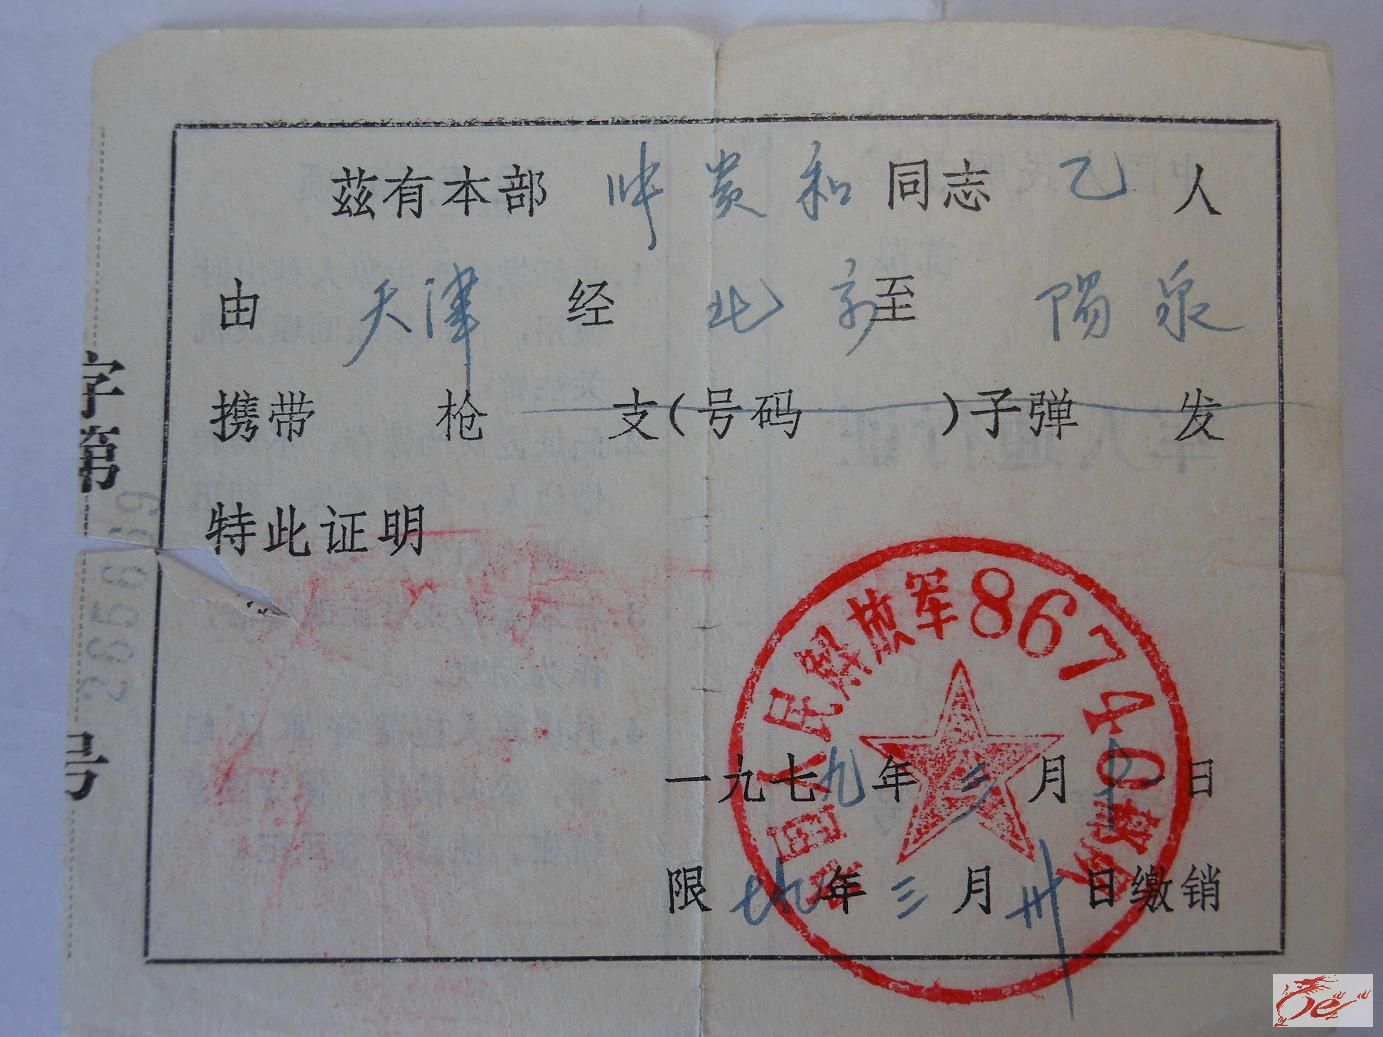 兹有本部 帅贵和 同志 乙 人
由 天津 经 北京 至 阳泉
携带 枪 支(号码 )子弹 发
特此证明
一九七九年 三 月 十一 日
限 七九 年 三 月 卅 日缴销
中国人民解放军86740部队
字第 号